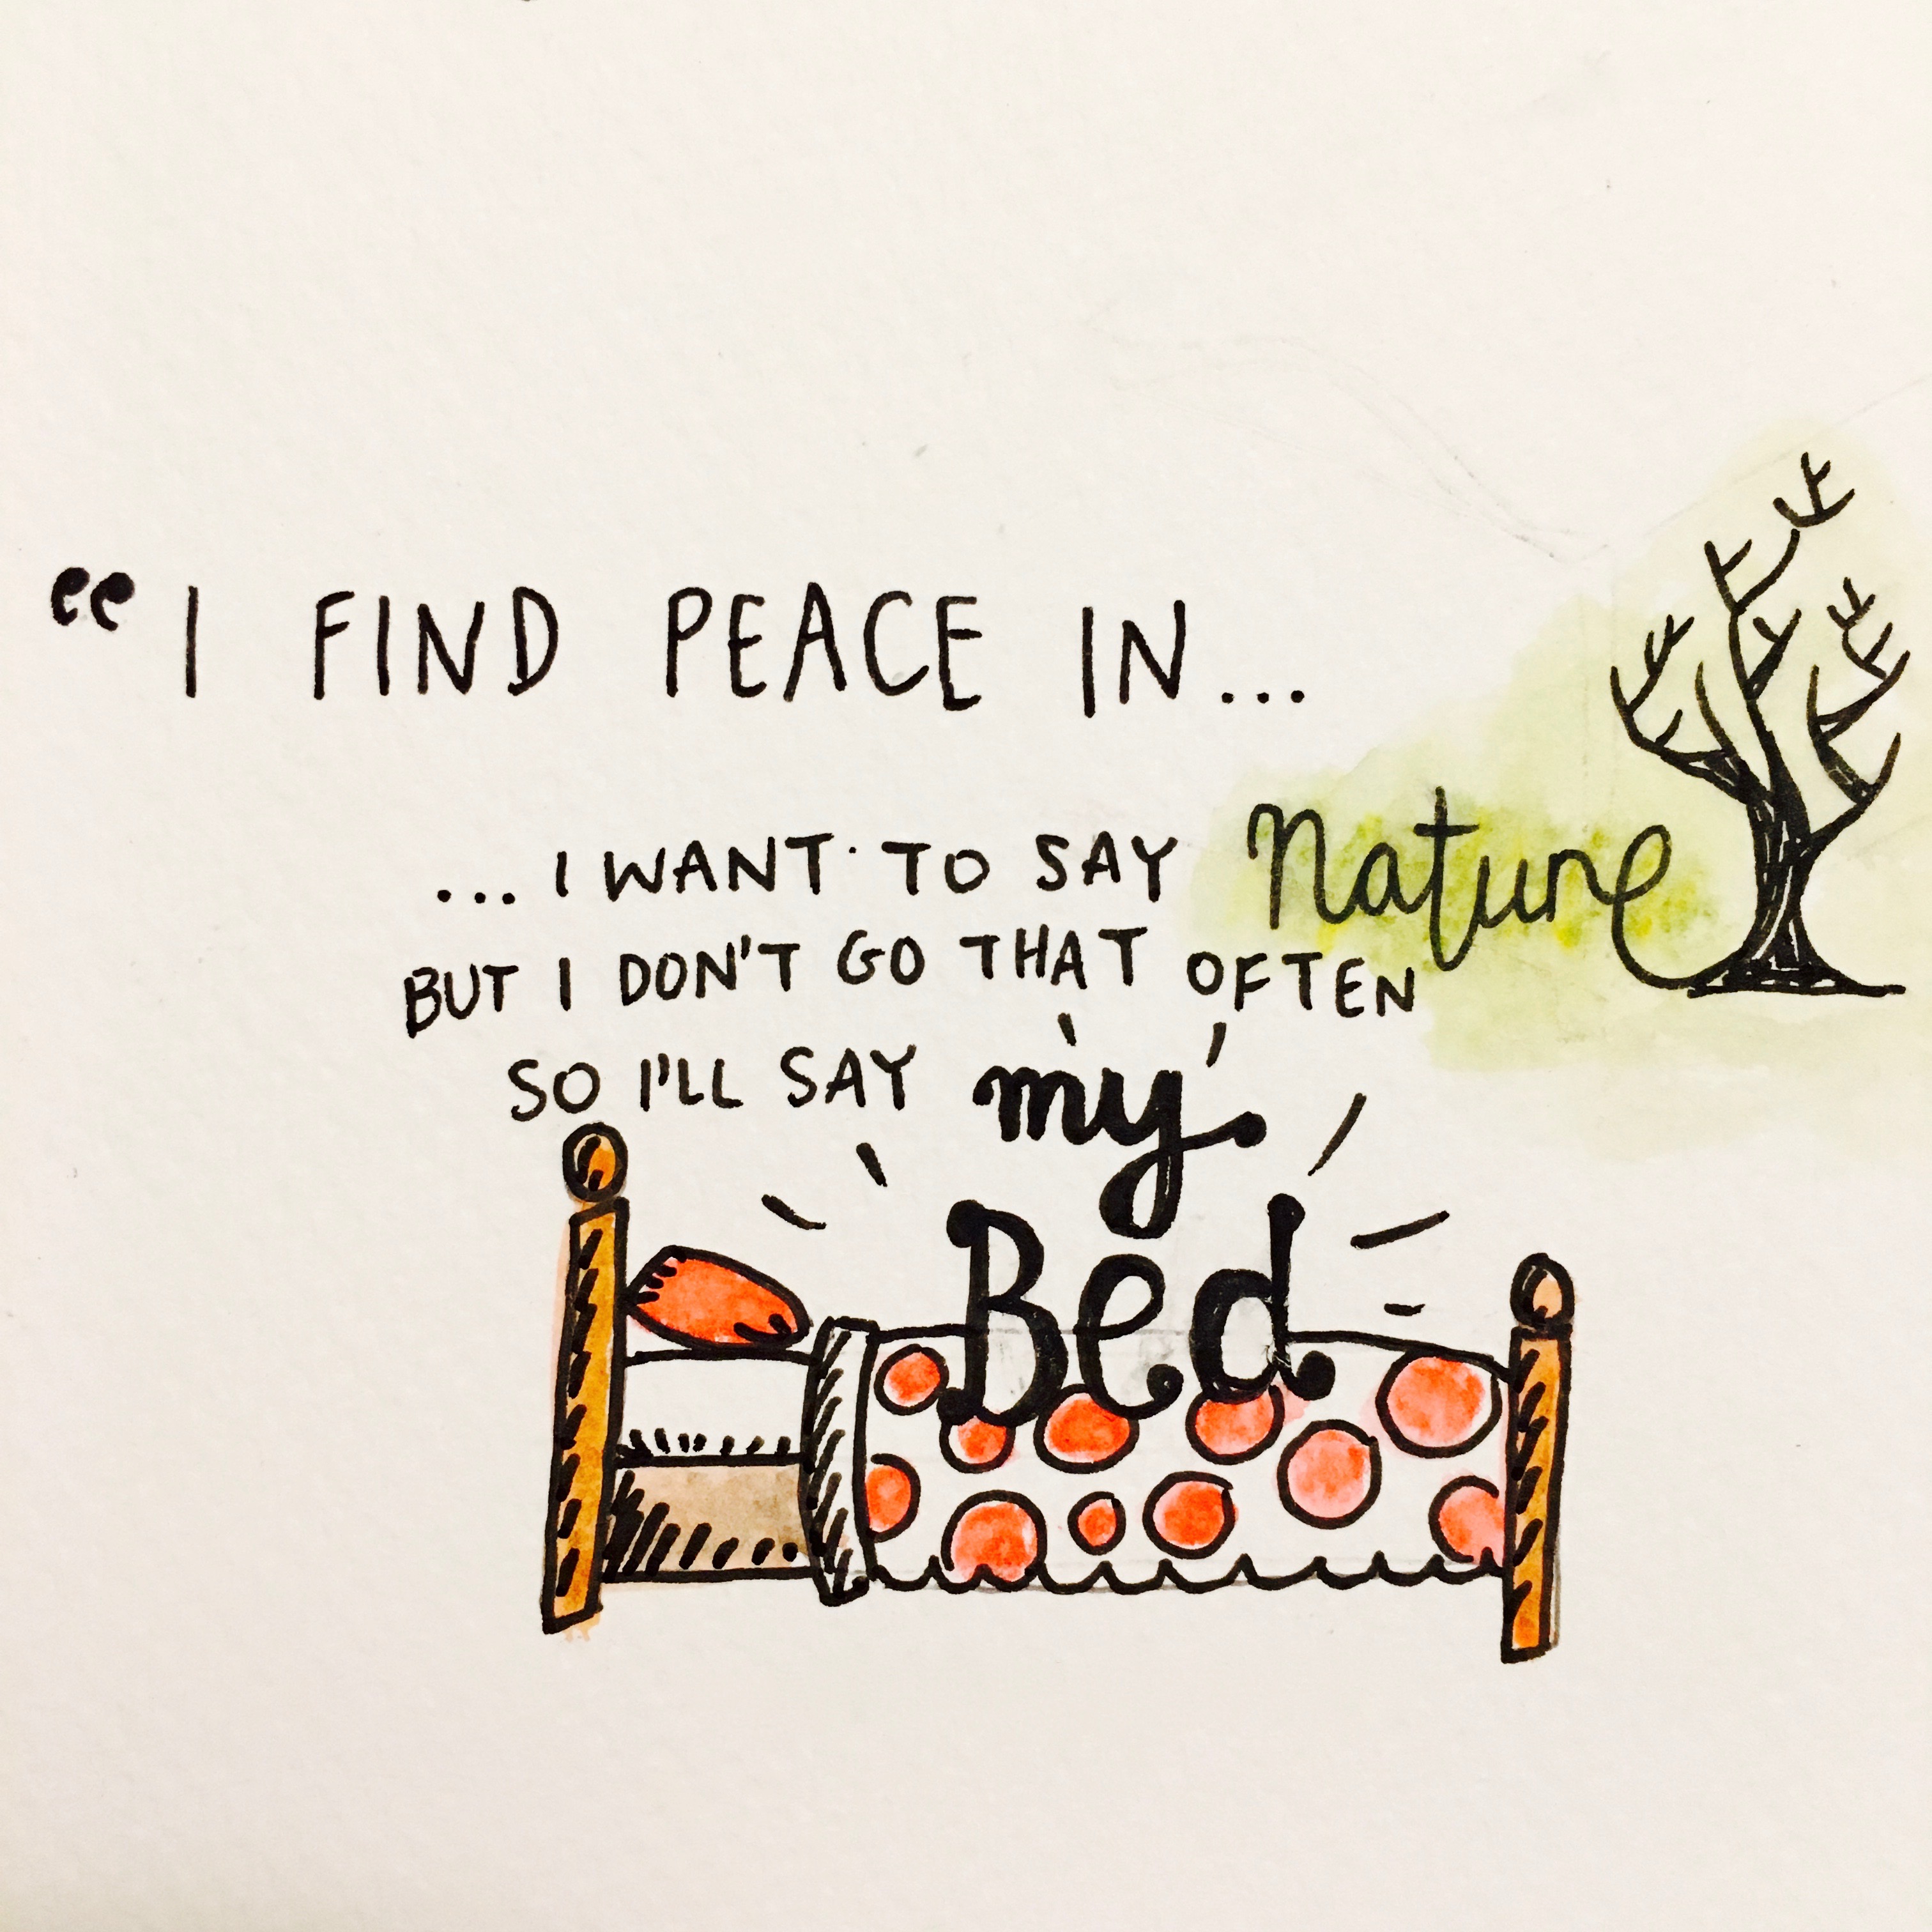 “I FIND PEACE IN...
...I WANT TO SAY Nature
BUT I DON'T GO THAT OFTEN
SO I'LL SAY my
Bed